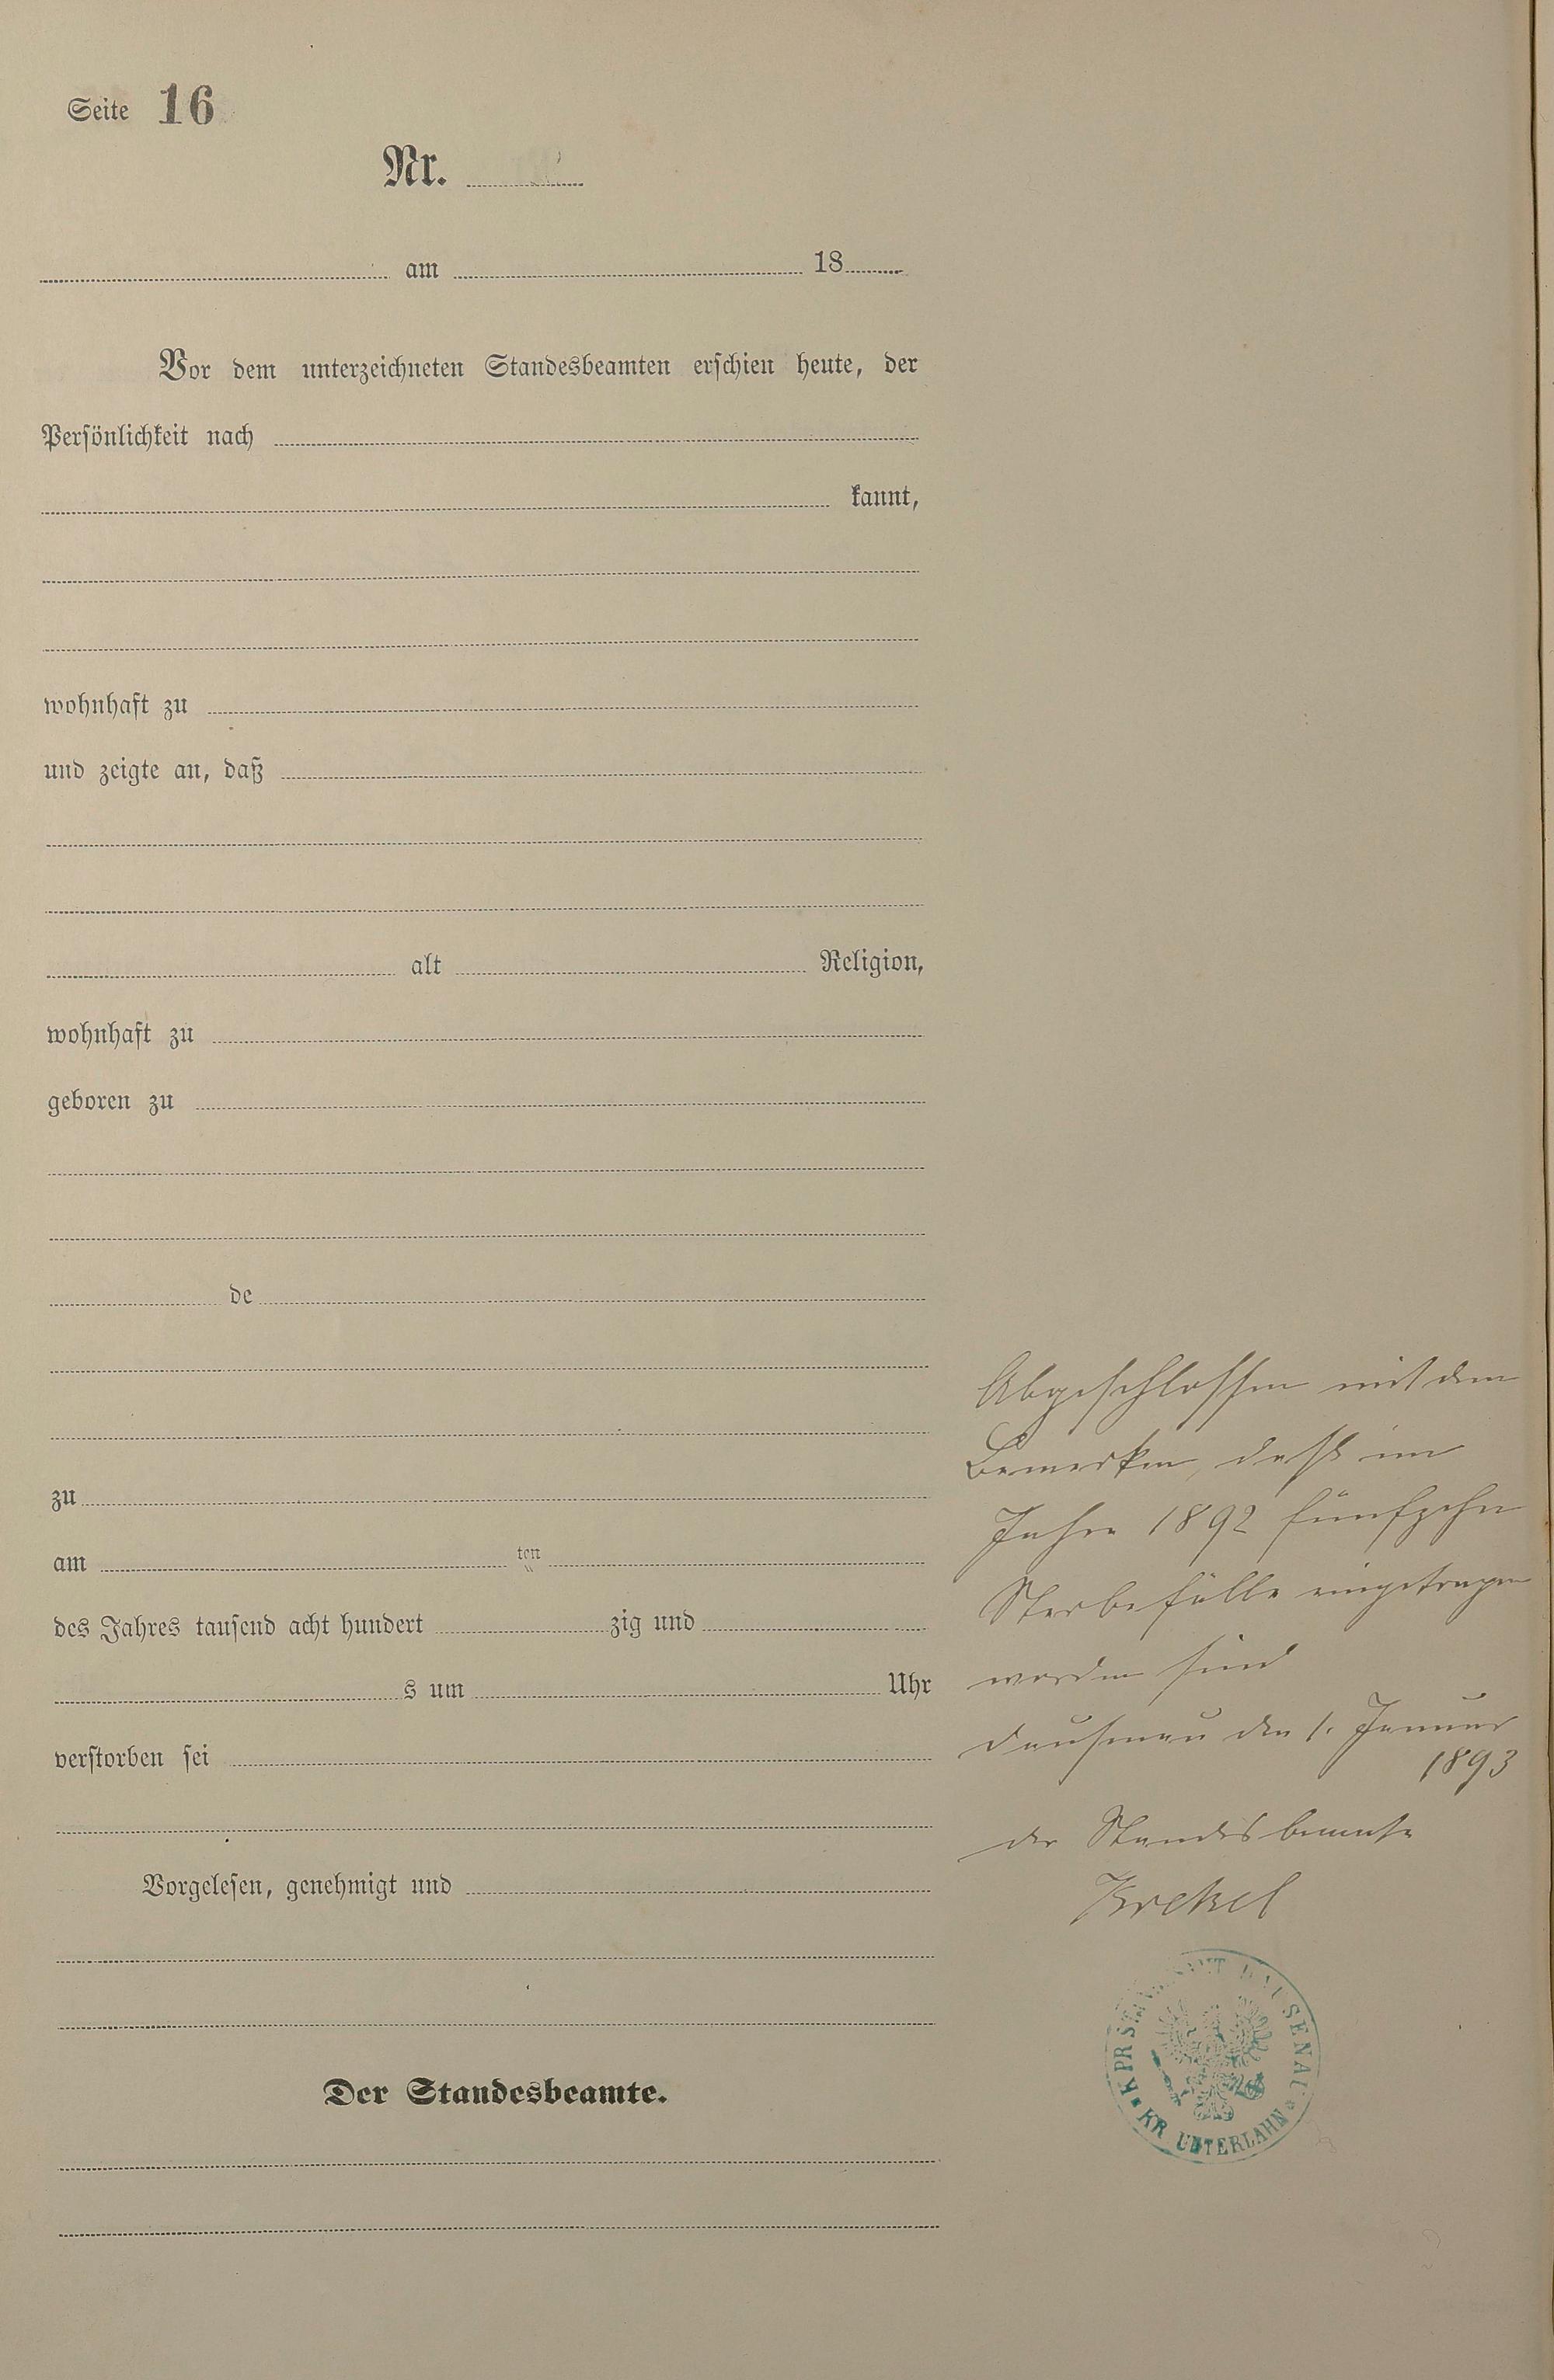 Seite 16
Nr.
am 18
Vor dem unterzeichneten Standesbeamten erschien heute, der
Persönlichkeit nach
kannt,
wohnhaft zu
und zeigte an, daß
alt Religion,
wohnhaft zu
geboren zu
de
zu
am ten
des Jahres tausend acht hundert zig und
s um Uhr
verstorben sei
Vorgelesen, genehmigt und
Der Standesbeamte.
Abgeschlossen mit dem
Bemerken, daß im
Jahre 1892 fünfzehn
Sterbefälle eingetragen
worden sind
Dausenau den 1. Januar
1893
der Standesbeamte
Krekel
K. PR. STANDESAMT DAUSENAU
KR. UNTERLAHN